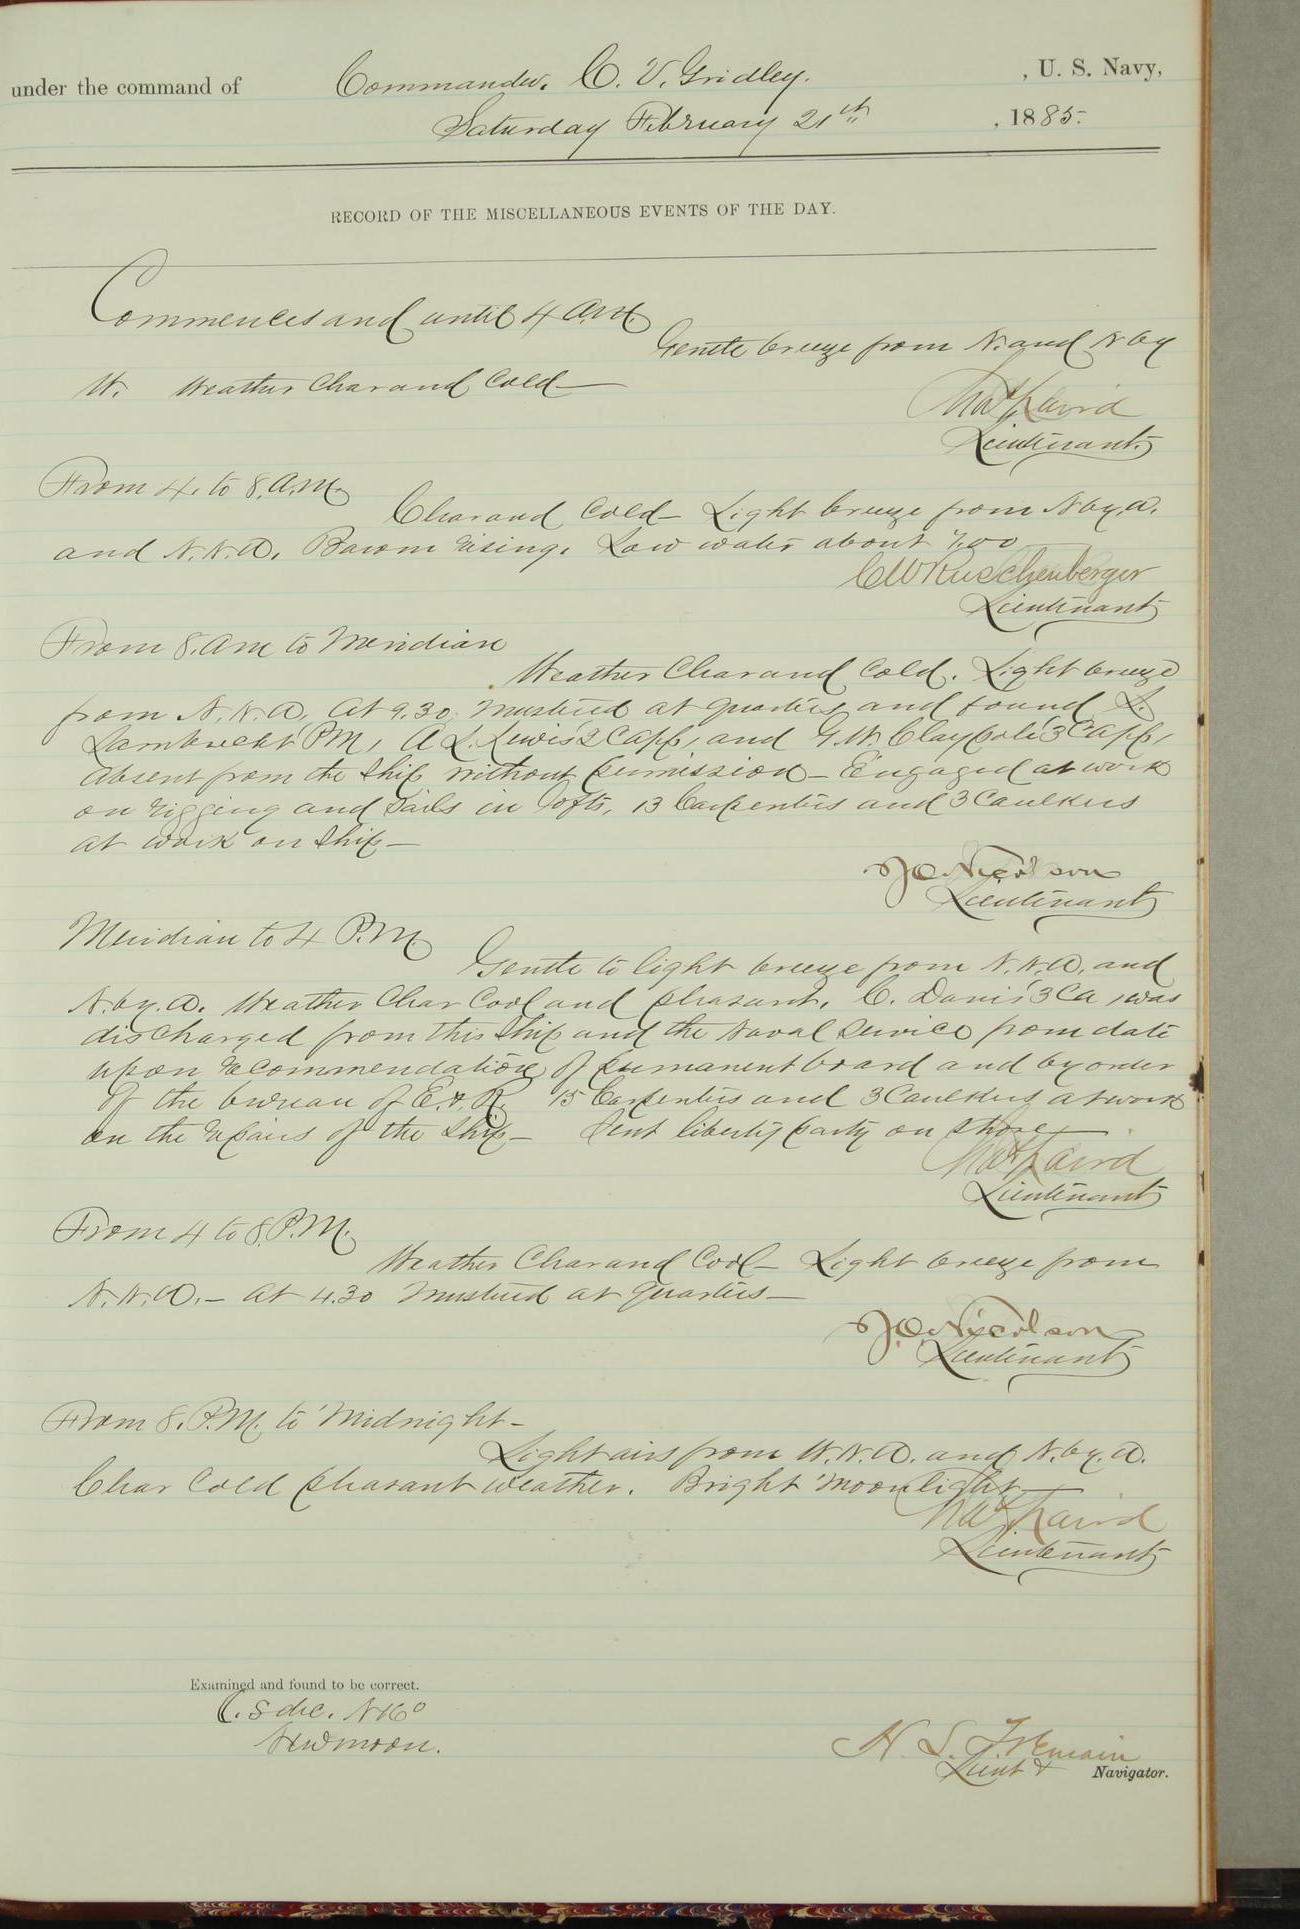 under the command of Commander. C. V. Gridley. , U. S. Navy,
Saturday February 21th , 1885.
RECORD OF THE MISCELLANEOUS EVENTS OF THE DAY.
Commences and until 4 A.M.
Gentle breeze from N. and N by
W. Weather Clear and Cold—
Laird
Lieutenant.
From 4. to 8. A.M.
Clear and Cold— Light breeze from N by. W.
and N.N.W. Barom rising. Low water about 7.00
C W Ruschenberger
Lieutenant
From 8. am to Meridian
Weather Clear and Cold. Light breeze
from N.N.W. At 9.30. Mustered at quarters and found L.
Lambrecht PM, A L. Lewis 2 Capp, and G. W. Claypole 3 Capp,
absent from the Ship without permission— Engaged at work
on rigging and Sails in lofts, 13 Carpenters and 3 Caulkers
at work on Ship—
J O Nicolson
Lieutenant
Meridian to 4 P.M.
Gentle to light breeze from N.N.W. and
N. by. W. Weather Clear Cool and pleasant. C. Davis 3 Ca , was
discharged from this Ship and the Naval Service from date
upon recommendation of permanent board and by order
of the bureau of E. & R. 15 Carpenters and 3 Caulkers at work
on the repairs of the Ship— Sent liberty party on shore—
Laird
Lieutenant
From 4 to 8. P.M.
Weather Clear and Cool— Light breeze from
N.N.W.— At 4.30 Mustered at Quarters—
J O Nicolson
Lieutenant
From 8. P.M. to Midnight—
Light airs from N.N.W. and N. by. W.
Clear Cold pleasant weather. Bright Moonlight—
Laird
Lieutenant
Examined and found to be correct.
C. S dec. N 16°
New moon.
Lieut & Navigator.